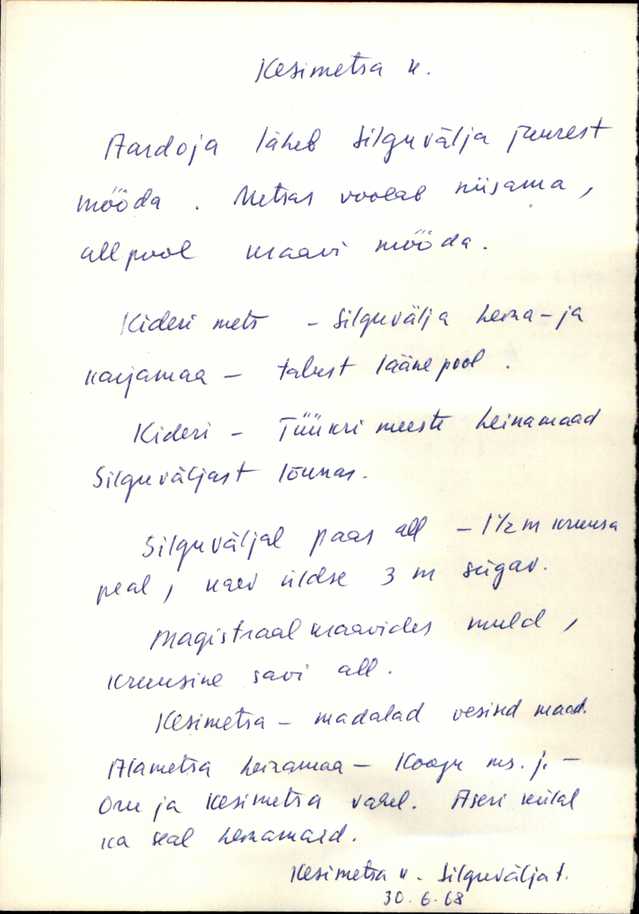 Kesimetsa k.
Aardoja läheb Silguvälja juurest
mööda. Metsas voolab niisama,
allpool kraavi mööda.
Kideri mets - Silguvälja heina- ja
karjamaa - talust lääne pool.
Kideri - Tüükri meeste heinamaad
Silguväljast lõunas.
Silguväljal paas all - 1 1/2 m kruusa
peal, kaev üldse 3 m sügav.
Magistraalkraavides muld,
kruusine savi all.
Kesimetsa - madalad vesised maad.
Alametsa heinamaa - Koogu ms. j. -
Oru ja Kesimetsa vahel. Aseri külal
ka seal heinamaid.
Kesimetsa k. Silguvälja t.
30.6.68